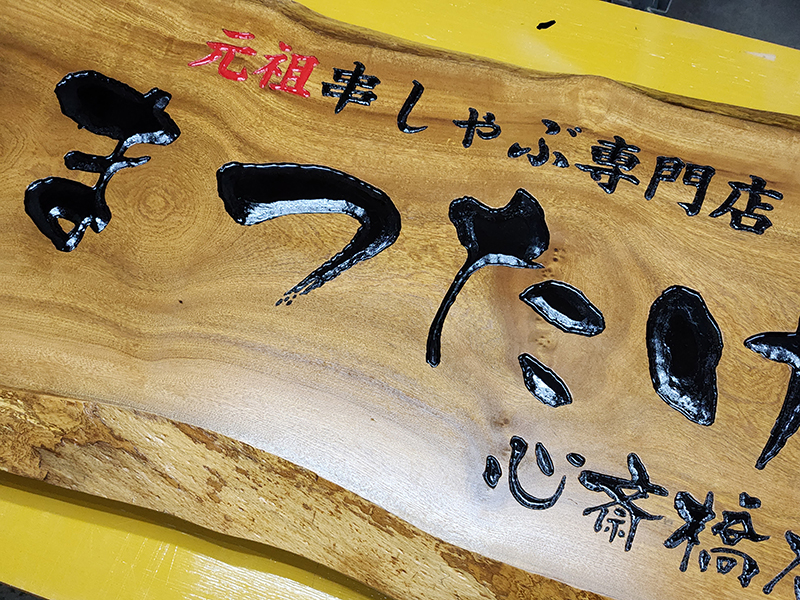 元祖串しゃぶ専門店
まつたけ
心斎橋